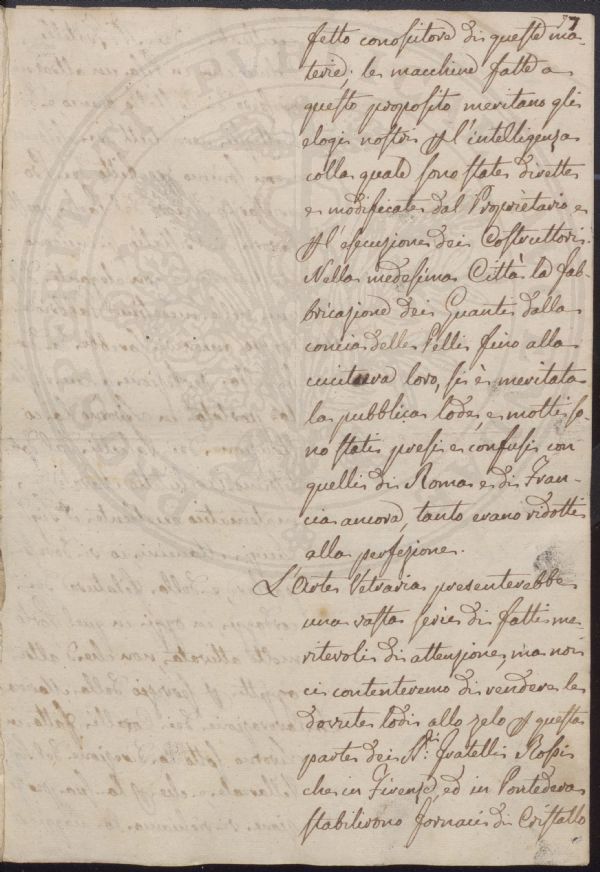 7
fetto conoscitore di queste ma-
terie; le macchine fatte a
questo proposito meritano gli
elogi nostri p l'intelligenza
colla quale sono state dirette
e modificate dal Proprietario e
p l'esecuzione dei Costruttori.
Nella medesima Città la fab-
bricazione dei Guanti dalla
concia delle Pelli fino alla
cucitura loro, si è meritata
la pubblica lode, e molti so-
no stati presi e confusi con
quelli di Roma e di Fran-
cia ancora, tanto erano ridotti
alla perfezione.
L'Arte Vetraria presenterebbe
una vasta serie di fatti me-
ritevoli di attenzione, ma noi
ci contenteremo di rendere le
dovute lodi allo zelo p questa
parte dei S.ri fratelli Rossi
che in Firenze, ed in Pontedera
stabilirono fornaci di Cristallo